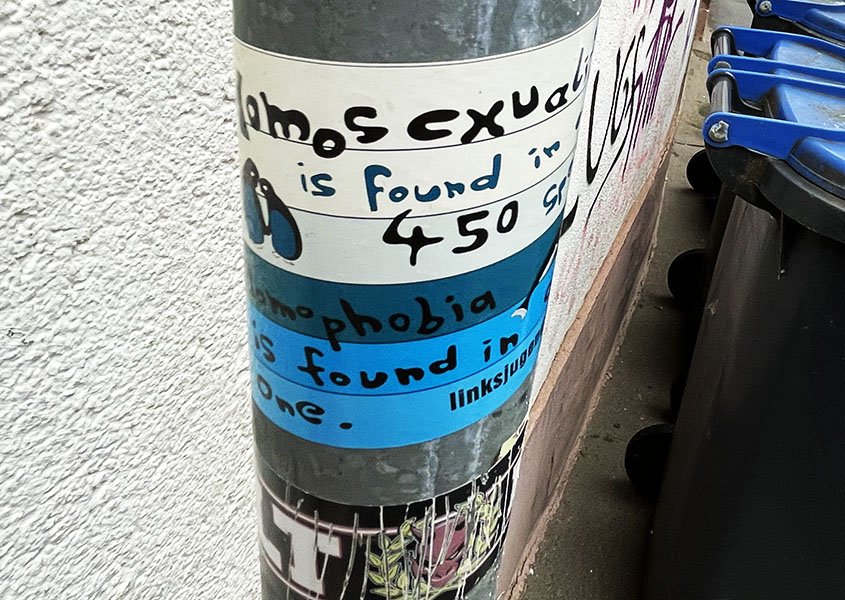 Homosexuali
is found in
450 sp
Homophobia
is found in
one.
linksjugen
LT